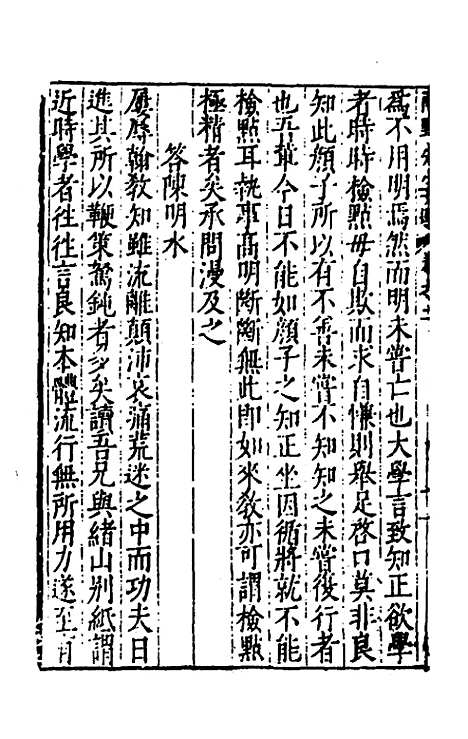 為不用明焉然而明未嘗亡也大學言致知正欲學
者時時檢點毋自欺而求自慊則舉足啓口莫非良
知此顏子所以有不善未嘗不知知之未嘗復行者
也吾輩今日不能如顏子之知正坐因循將就不能
檢點耳執事高明斷斷無此即如來敎亦可謂檢點
極精者矣承問漫及之
答陳明水
屢辱翰敎知雖流離顛沛哀痛荒迷之中而功夫日
進其所以鞭策駑鈍者多矣讀吾兄與緒山别紙謂
近時學者往往言良知本體流行無所用力遂至有